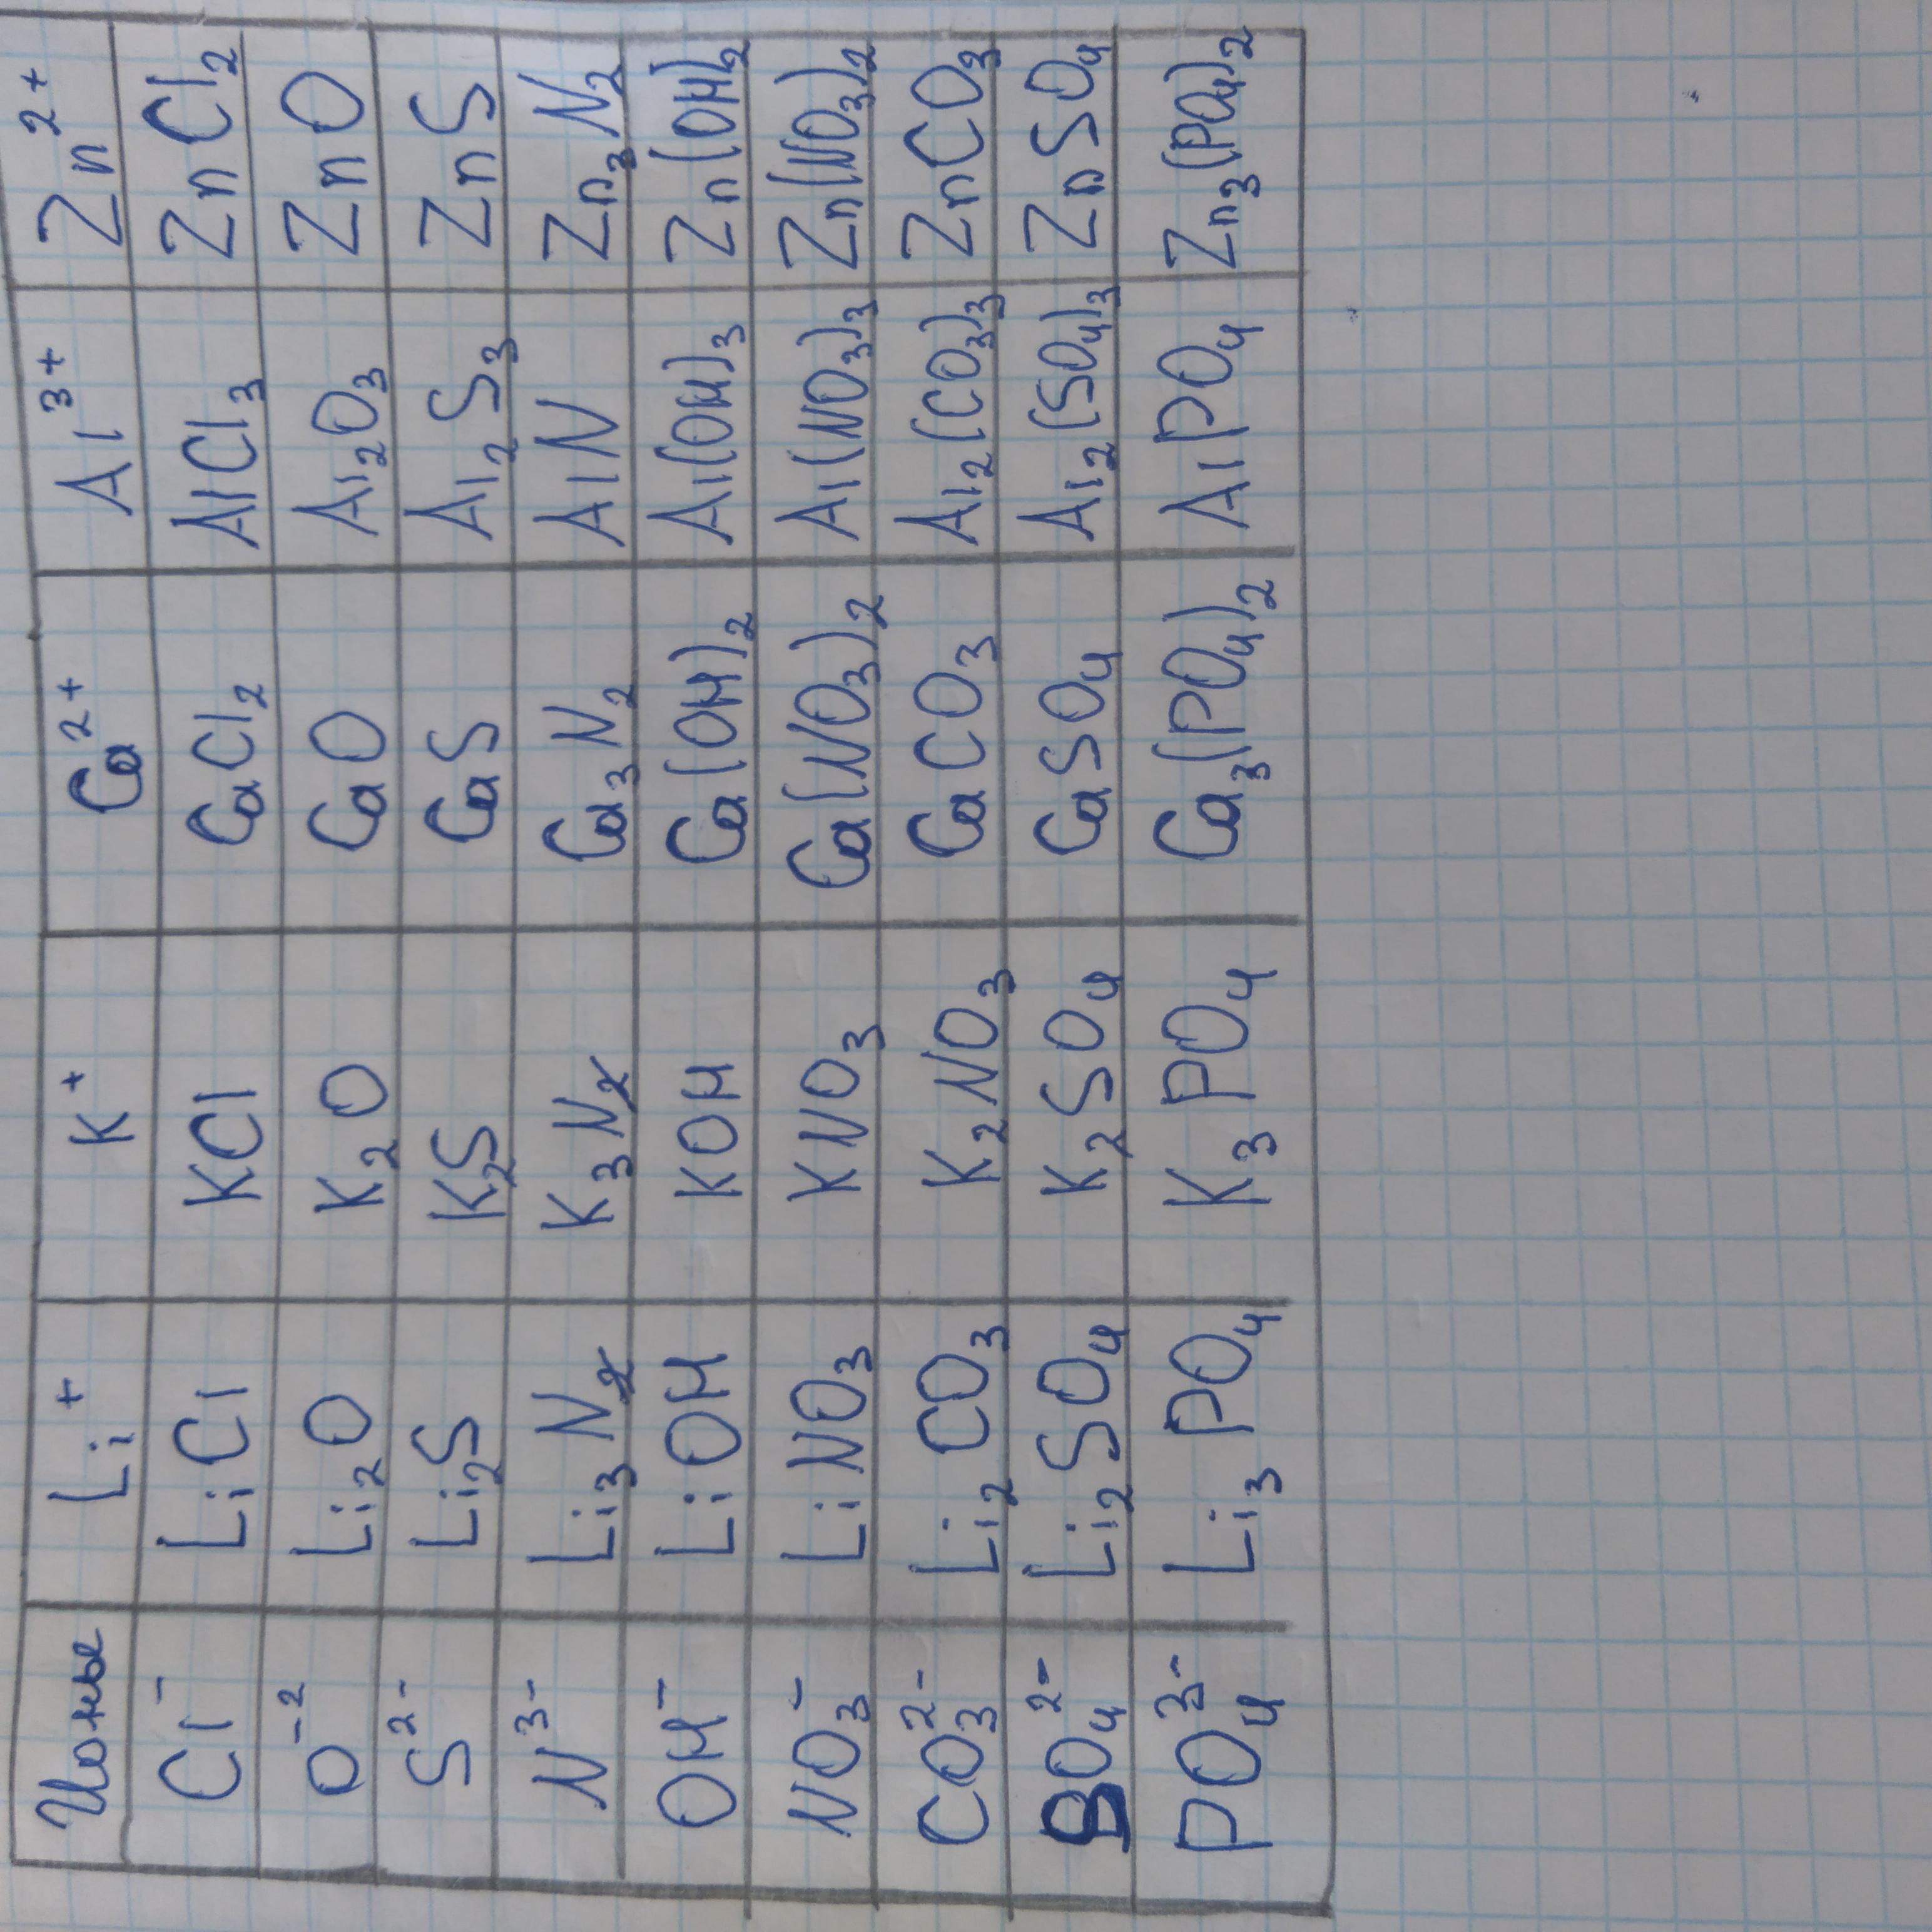 Ионы Li⁺ K⁺ Ca²⁺ Al³⁺ Zn²⁺
Cl⁻ LiCl KCl CaCl₂ AlCl₃ ZnCl₂
O⁻² Li₂O K₂O CaO Al₂O₃ ZnO
S²⁻ Li₂S K₂S CaS Al₂S₃ ZnS
N³⁻ Li₃N K₃N Ca₃N₂ AlN Zn₃N₂
OH⁻ LiOH KOH Ca(OH)₂ Al(OH)₃ Zn(OH)₂
NO₃⁻ LiNO₃ KNO₃ Ca(NO₃)₂ Al(NO₃)₃ Zn(NO₃)₂
CO₃²⁻ Li₂CO₃ K₂NO₃ CaCO₃ Al₂(CO₃)₃ ZnCO₃
SO₄²⁻ Li₂SO₄ K₂SO₄ CaSO₄ Al₂(SO₄)₃ ZnSO₄
PO₄³⁻ Li₃PO₄ K₃PO₄ Ca₃(PO₄)₂ AlPO₄ Zn₃(PO₄)₂